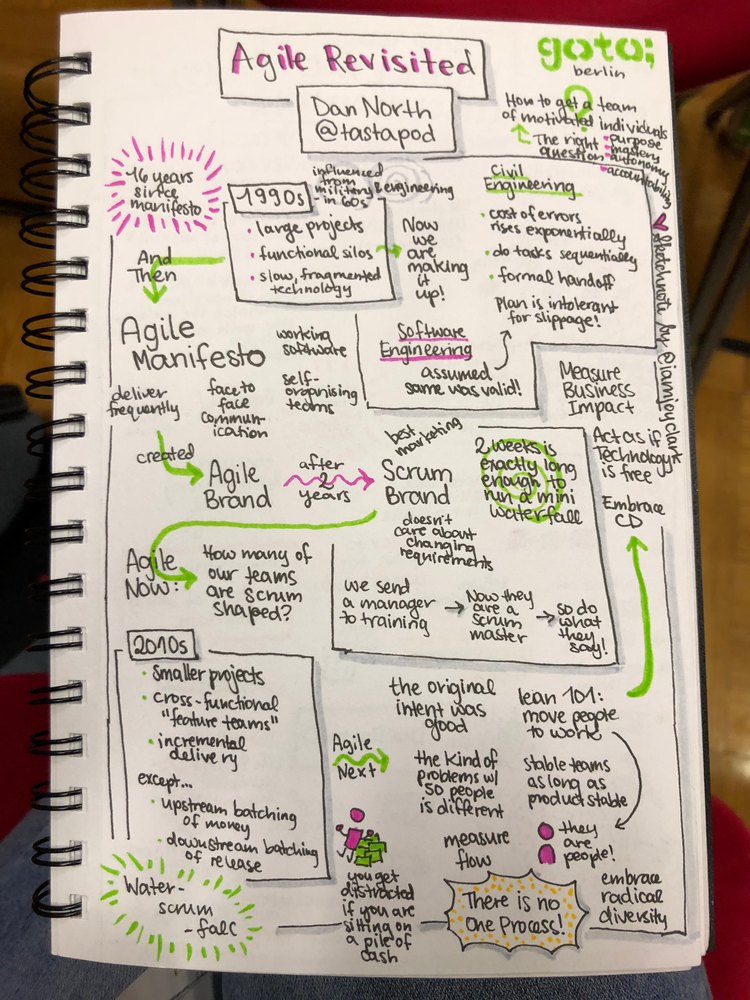 Agile Revisited
goto;
berlin
Dan North
@tastapod
How to get a team
of motivated individuals
?
The right
question
purpose
mastery
autonomy
accountability
16 years
since
manifesto
1990s
influenced
from
military & engineering
in 60s
large projects
functional silos
slow, fragmented
technology
Now
we
are
making
it
up!
Civil
Engineering
cost of errors
rises exponentially
do tasks sequentially
formal handoff
Plan is intolerant
for slippage!
Software
Engineering
assumed
same was valid!
sketchnote by @iamjoyclark
And
Then
Agile
Manifesto
working
software
deliver
frequently
face to
face
commun-
ication
self-
organising
teams
created
Agile
Brand
after
2
years
best
marketing
Scrum
Brand
2 weeks is
exactly long
enough to
run a mini
waterfall
doesn't
care about
changing
requirements
we send
a manager
to training
Now they
are a
scrum
master
so do
what
they
say!
Measure
Business
Impact
Act as if
Technology
is free
Embrace
CD
Agile
Now:
How many of
our teams
are scrum
shaped?
2010s
smaller projects
cross-functional
"feature teams"
incremental
delivery
except...
upstream batching
of money
downstream batching
of release
Water-
scrum
-fall
Agile
Next
the original
intent was
good
the kind of
problems w/
50 people
is different
measure
flow
lean 101:
move people
to work
stable teams
as long as
product stable
they
are
people!
you get
distracted
if you are
sitting on
a pile of
cash
There is no
One Process!
embrace
radical
diversity